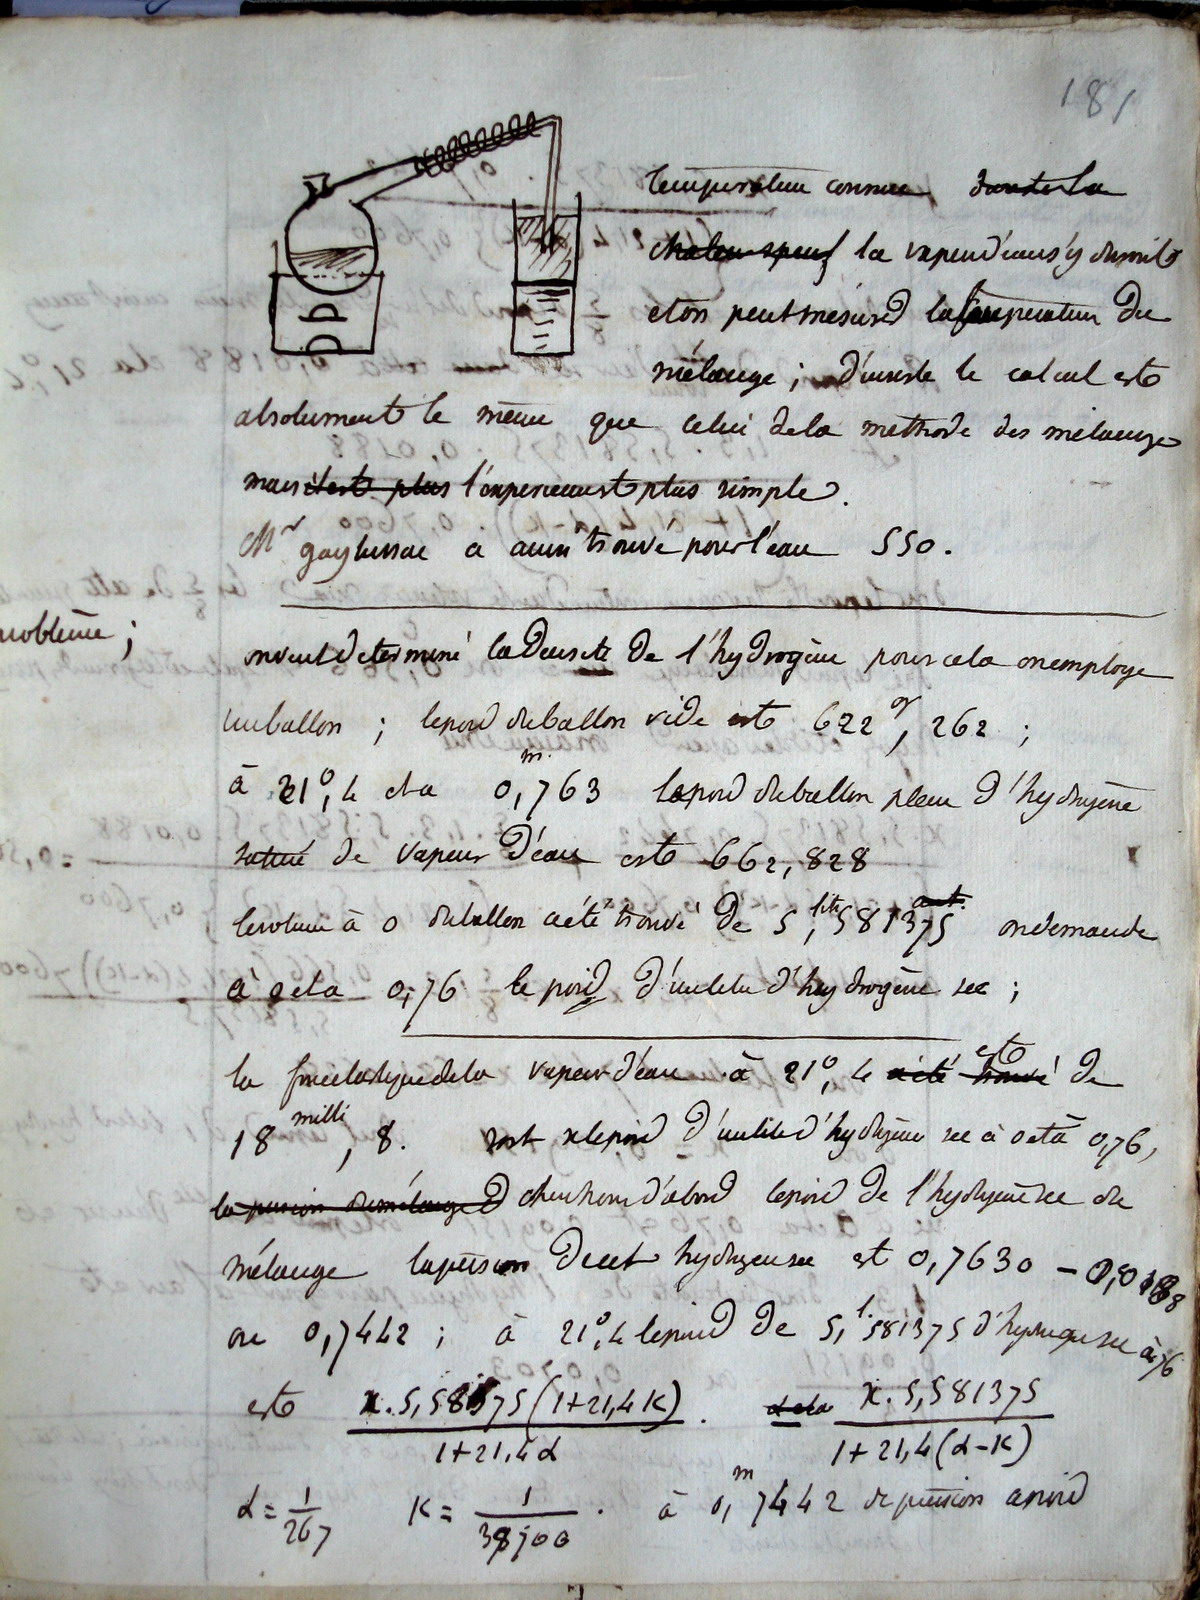 181
temperature connue, dans la
chaleur specif la vapeur d'eau s'y dissout
et on peut mésurer la température du
mélange ; d'ailleurs le calcul est
absolument le même que celui de la methode des melanges
mais c'est plus l'experience est plus simple.
Mr gay lussac a aussi trouvé pour l'eau 550.
probleme ;
on veut determiné la Densité de l'hydrogène pour cela on employe
un ballon ; le poid du ballon vide est 622gr, 262 ;
à 21°,4 et a 0m,763 le poid du ballon plein d'hydrogène
saturé de vapeur d'eau est 662,828
le volume à 0 du ballon a été trouvé de 5lit,581375 on demande
à 0 et a 0,76 le poid d'un litre d'hydrogène sec ;
la force elastique de la vapeur d'eau à 21°,4 a été trouvé est de
18milli,8. soit x le poid d'un litre d'hydrogène sec à 0 et à 0,76,
la pression du mélange cherchons d'abord le poid de l'hydrogène sec du
mélange la pression de cet hydrogene sec est 0,7630 - 0,0188
ou 0,7442 ; à 21°,4 le poid de 5l,581375 d'hydrogene sec à 76
est x.5,581375(1+21,4K) / 1+21,4α . et a x.5,581375 / 1+21,4(α-K)
α = 1/267 K = 1/38700 . à 0m,7442 de pression ce poid